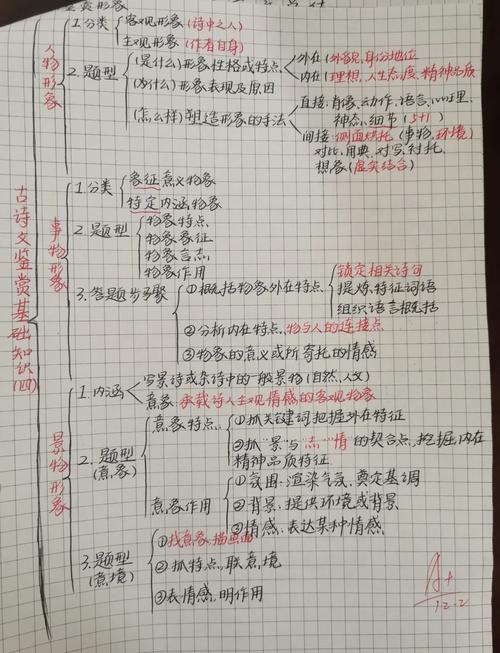 古诗文鉴赏基础知识(四)
人物形象
1.分类
客观形象(诗中之人)
主观形象(作者自身)
2.题型
(是什么)形象性格或特点
外在(外貌,身份地位
内在(理想,人生态度,精神品质
(为什么)形象表现及原因
(怎么样)塑造形象的手法
直接:肖像,动作,语言,心理,
神态,细节(5+1)
间接:侧面烘托(事物,环境)
对比,用典,对写,衬托,
想象(虚实结合)
事物形象
1.分类
象征意义物象
特定内涵物象
2.题型
物象特点
物象象征
物象言志
物象作用
3.答题步骤
①概括物象外在特点
锁定相关诗句
提炼特征词语
组织语言概括
②分析内在特点,物与人的连接点
③物象的意义或所寄托的情感
景物形象
1.内涵
写景诗或杂诗中的一般景物(自然,人文)
意象:承载诗人主观情感的客观物象
2.题型
(意象)
意象特点
①抓关键词把握外在特征
②抓"景"与"志""情"的契合点,挖掘内在
精神品质特征
意象作用
①氛围:渲染气氛,奠定基调
②背景:提供环境或背景
③情感:表达某种情感
3.题型
(意境)
①找意象,描画面
②抓特点,联意境
③表情感,明作用
A+
12.2